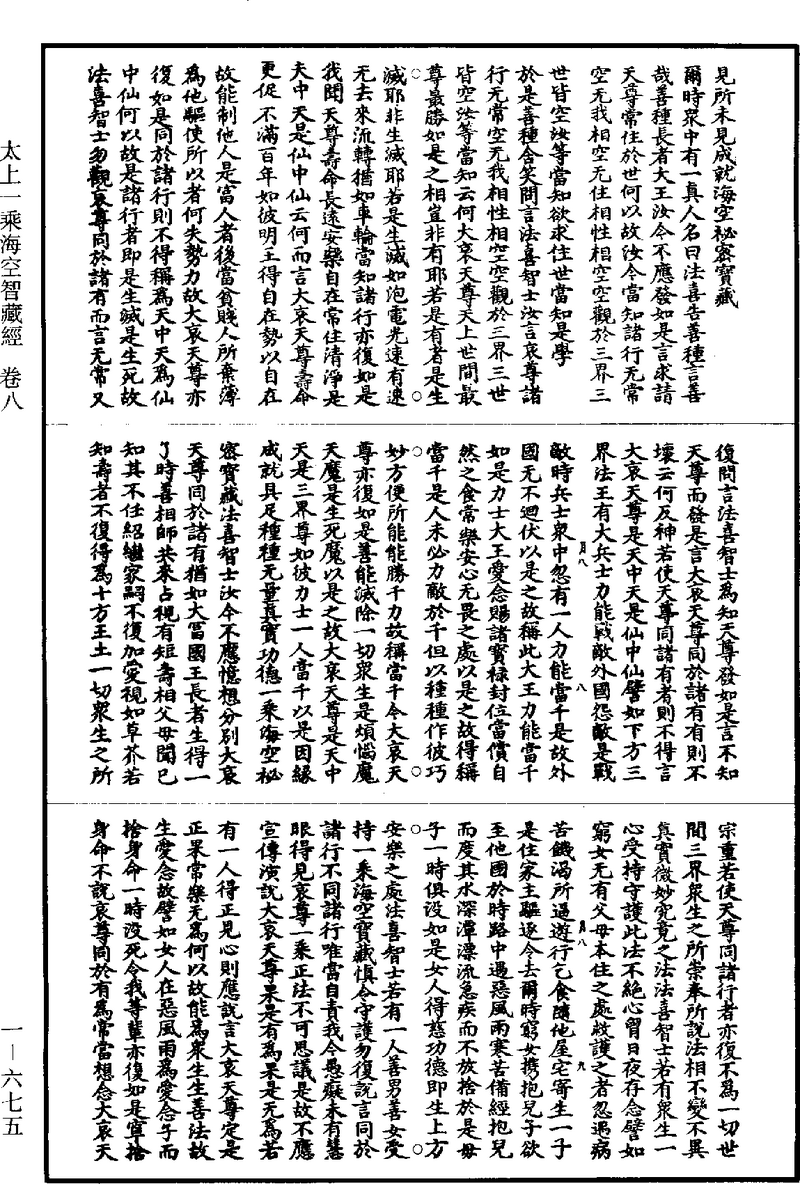 見所未見成就海空祕密寶藏
爾時眾中有一真人名曰法喜告善種言善
哉善種長者大王汝今不應發如是言求請
天尊常住於世何以故汝今當知諸行无常
空无我相空无住相性相空空觀於三界三
世皆空汝等當知欲求住世當知是學
於是善種含笑問言法喜智士汝言哀尊諸
行无常空无我相性相空空觀於三界三世
皆空汝等當知云何大哀天尊天上世間最
尊最勝如是之相豈非有耶若是有者是生
滅耶非生滅耶若是生滅如泡電光速有速
无去來流轉猶如車輪當知諸行亦復如是
我聞天尊壽命長遠安樂自在常住清淨是
天中天是仙中仙云何而言大哀天尊壽命
更促不滿百年如彼明王得自在勢以自在
故能制他人是富人者後當貧賤人所棄薄
為他驅使所以者何失勢力故大哀天尊亦
復如是同於諸行則不得稱為天中天為仙
中仙何以故是諸行者即是生滅是生死故
法喜智士勿觀哀尊同於諸有而言无常又
復問言法喜智士為知天尊發如是言不知
天尊而發是言大哀天尊同於諸有有則不
壞云何反神若使天尊同諸有者則不得言
大哀天尊是天中天是仙中仙譬如下方三
界法王有大兵士力能戰敵外國怨敵是戰
敵時兵士眾中忽有一人力能當千是故外
國无不迴伏以是之故稱此大王力能當千
如是力士大王愛念賜諸寶祿封位當償自
然之食常樂安心无畏之處以是之故得稱
當千是人未必力敵於千但以種種作彼巧
妙方便所能能勝千力故稱當千今大哀天
尊亦復如是善能滅除一切眾生是煩惱魔
天魔是生死魔以是之故大哀天尊是天中
天是三界尊如彼力士一人當千以是因緣
成就具足種種无量真實功德一乘海空祕
密寶藏法喜智士汝今不應憶想分別大哀
天尊同於諸有猶如大富國王長者生得一
了時善相師共來占視有短壽相父母聞已
知其不任紹繼家嗣不復加愛視如草芥若
知壽者不復得為十方王土一切眾生之所
宗重若使天尊同諸行者亦復不為一切世
間三界眾生之所崇奉所說法相不變不異
真實微妙究竟之法法喜智士若有眾生一
心受持守護此法不絕心胷日夜存念譬如
窮女无有父母本住之處救護之者忽遇病
苦餓渴所逼遊行乞食隨他屋宅寄生一子
是住家主驅逐令去爾時窮女擕抱兒子欲
至他國於時路中遇惡風雨寒苦備經抱兒
而度其水深潭漂流急疾而不放捨於是母
子一時俱沒如是女人得慈功德即生上方
安樂之處法喜智士若有一人善男善女受
持一乘海空寶藏慎令守護勿復說言同於
諸行不同諸行唯當自責我今愚癡未有慧
眼得見哀尊一乘正法不可思議是故不應
宣傳演說大哀天尊果是有為果是无為若
有一人得正見心則應說言大哀天尊定是
正果常樂无為何以故能為眾生生善法故
生愛念故譬如女人在惡風雨為愛念子而
捨身命一時沒死令我等輩亦復如是寧捨
身命不說哀尊同於有為常當想念大哀天
太上一乘海空智藏經 卷八
一—六七五